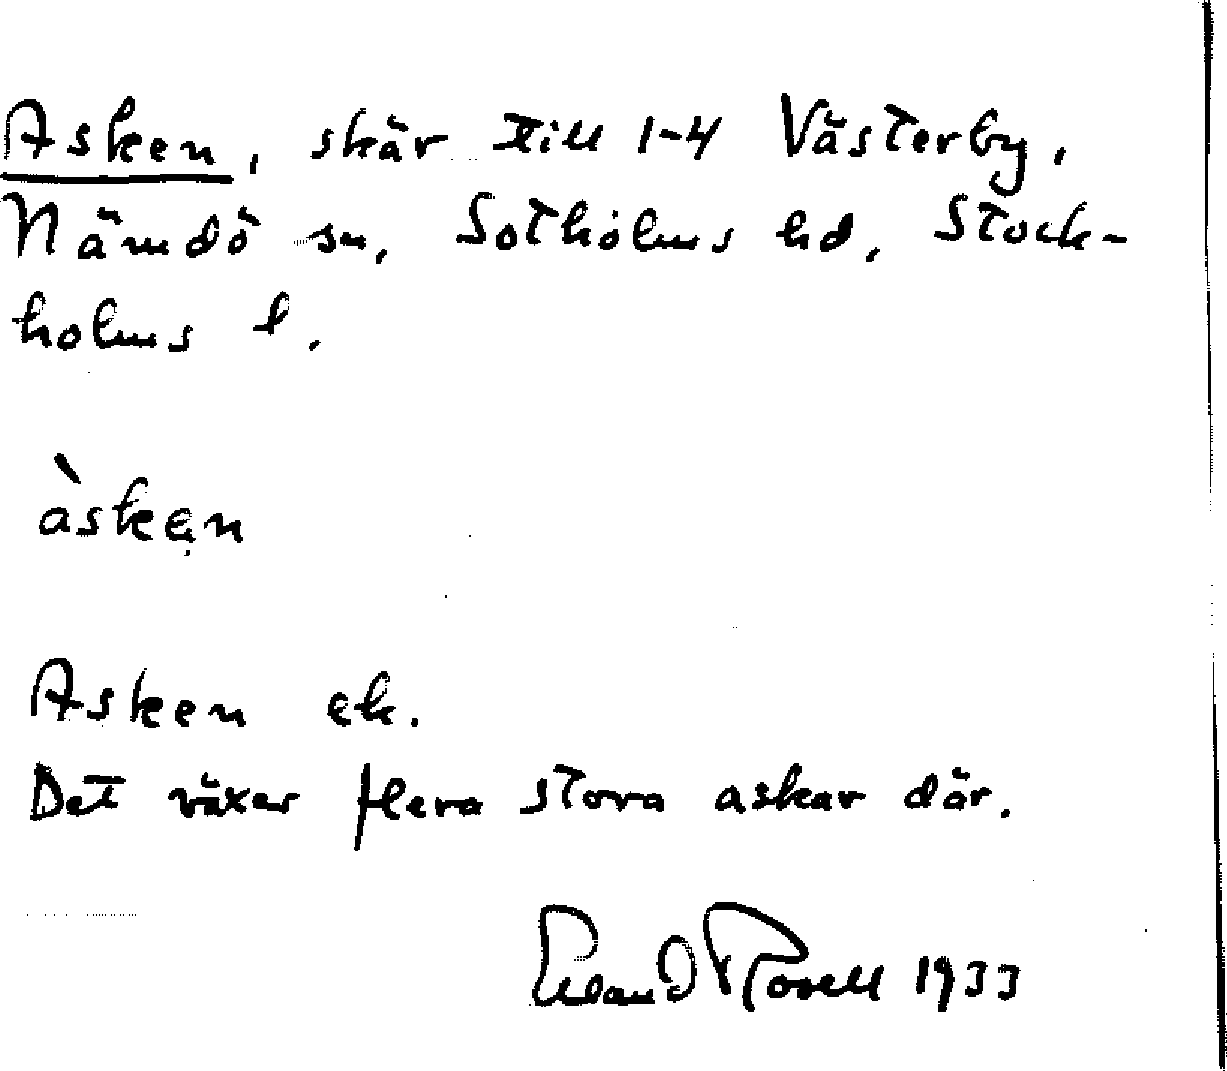 Asken, skär till 1-4 Västerby,
Nämdö sn, Sotholms hd, Stock-
holms l.
àskẹn
Asken ek.
Det växer flera stora askar där.
Erland Rosell 1933